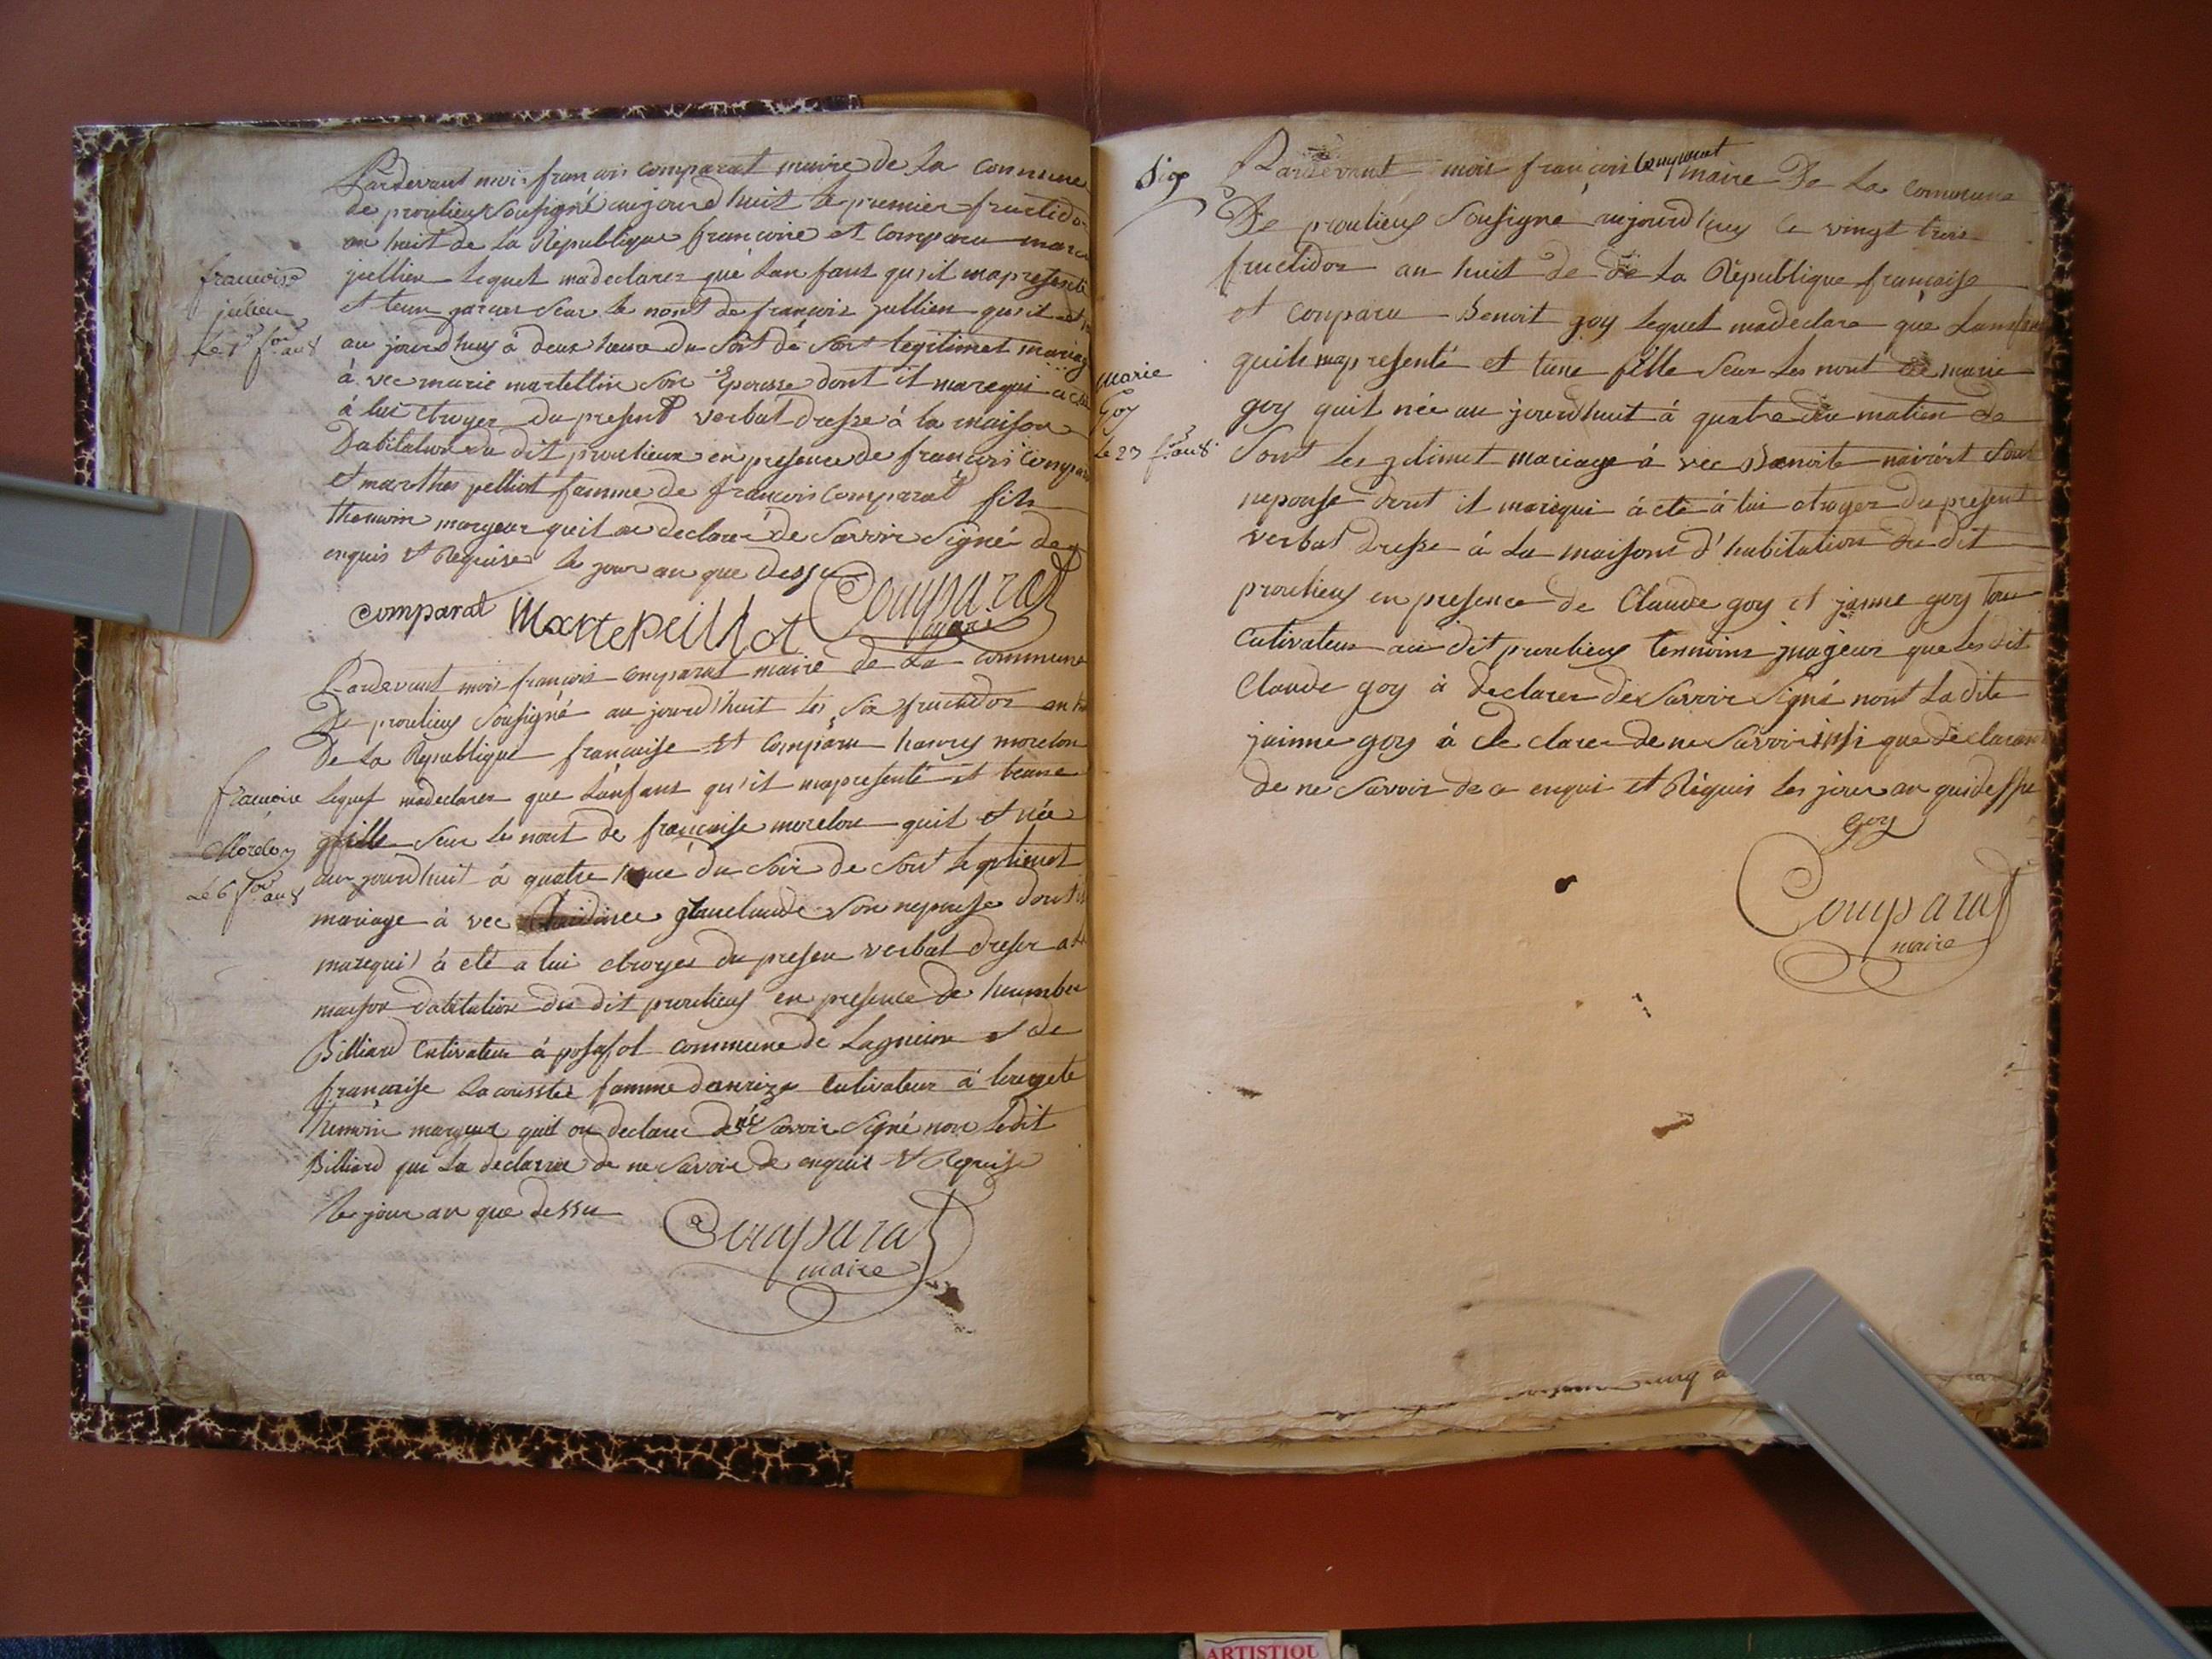 Pardevant moi françois comparat maire de La Commune
de proulieux Sousigné aujourd huit le premier fructidor
an huit de La République francoise et comparu marc
jullien lequel madeclarer que Lanfans qu'it mapresenté
et teun garcon Seur le nont de françois jullien qu'it et
au jourdhuy à deux heure du Soit de Sont legitimet mariage
à vec marie martellin Son Epousse dont it marequi a eté
à lui ctroyer du present verbat dresse à la maison
Dabitation du dit proulieux en presence de françois Compara
et marthe pelliot famme de françois Comparat fils
themoin margeur quit on declaré de Savoir Signé de
enquis et Requise le jour an que dessu
comparat Martepeillot Comparat
maire
francoise
julien
Le 1er for an 8
Pardevant moi françois Comparat maire de La Commune
De proulieux Sousigné au jourd'huit les Six fructidor an
De La République francaise et Comparu hanry morelon
lequel madeclarer que Lanfans qu'it mapresenté et teune
fille Seur le nont de françoise morelon quit et née
au jourdhuit à quatre heure du Soir de Sont legitimet
mariage à vec Claudine Son nepouse dont it
marequi à eté a lui ctroyer du presen verbat dresser a la
maison dabitation du dit proulieux en presence de humbe
Billiard Cultivateur à posafol commune de Lagnieu et de
françoise famme Cultivateur à
Temoin margeur quit on declarer de ne Savoir Signé non Ledit
Billiard qui La declarra de ne Savoir de enquis et Requise
le jour an que dessu
Comparat
maire
francoise
Morelon
Le 6 for an 8
Pardevant moi françois Comparat maire De La Commune
De proulieux Sousigne aujourdhuy le vingt trois
fructidor an huit de de La République françaisse
et Conparu Benoit goy lequel madeclare que Lanfan
quile mapresenté et tune fille Seur Les nont de marie
goy quit née au jourdhuit à quatre du matien de
Sont Legitimet mariage à vec Benoite Sont
nepouse dont it marequi à eté à lui ctroyer du present
verbat dresse à La maisont d'habitation du dit
proulieux en presence de Claude goy et janne goy tou
Cutivateur au dit proulieux temoins majeur que Les dit
Claude goy à declarer de Savoir Signé nont La dite
jainne goy à de clarer de ne Savoir insi que declarant
de ne Savoir de a enqui et Réquis Les jour an quidessu
goy
Comparat
maire
marie
Goy
Le 23 for an 8
ARTISTIQU